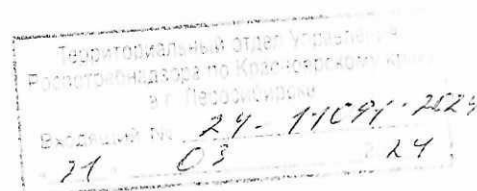 Территориальный отдел Управления
Роспотребнадзора по Красноярскому краю
в г. Лесосибирске
Входящий №
21 03 24